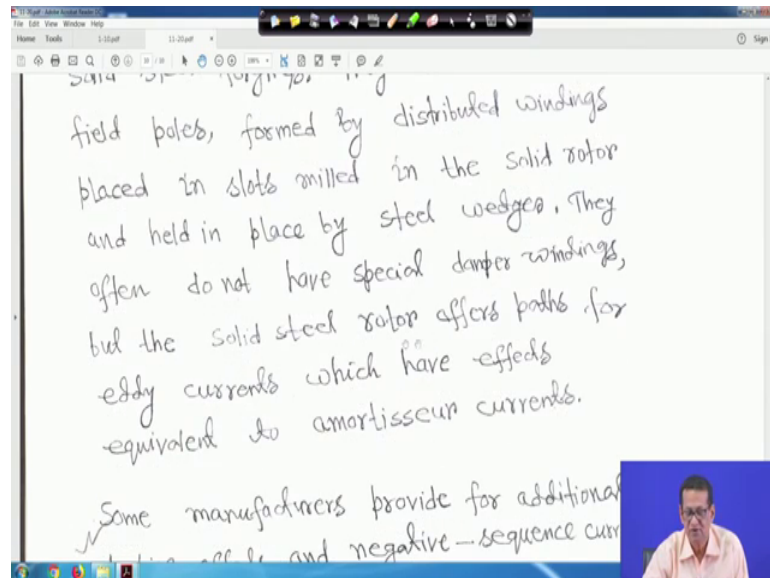 11-20.pdf - Adobe Acrobat Reader DC
File Edit View Window Help
Home Tools 1-10.pdf 11-20.pdf × Sign
field poles, formed by distributed windings
placed in slots milled in the solid rotor
and held in place by steel wedges. They
often do not have special damper windings,
but the solid steel rotor offers paths for
eddy currents which have effects
equivalent to amortisseur currents.
Some manufacturers provide for additional
and negative-sequence